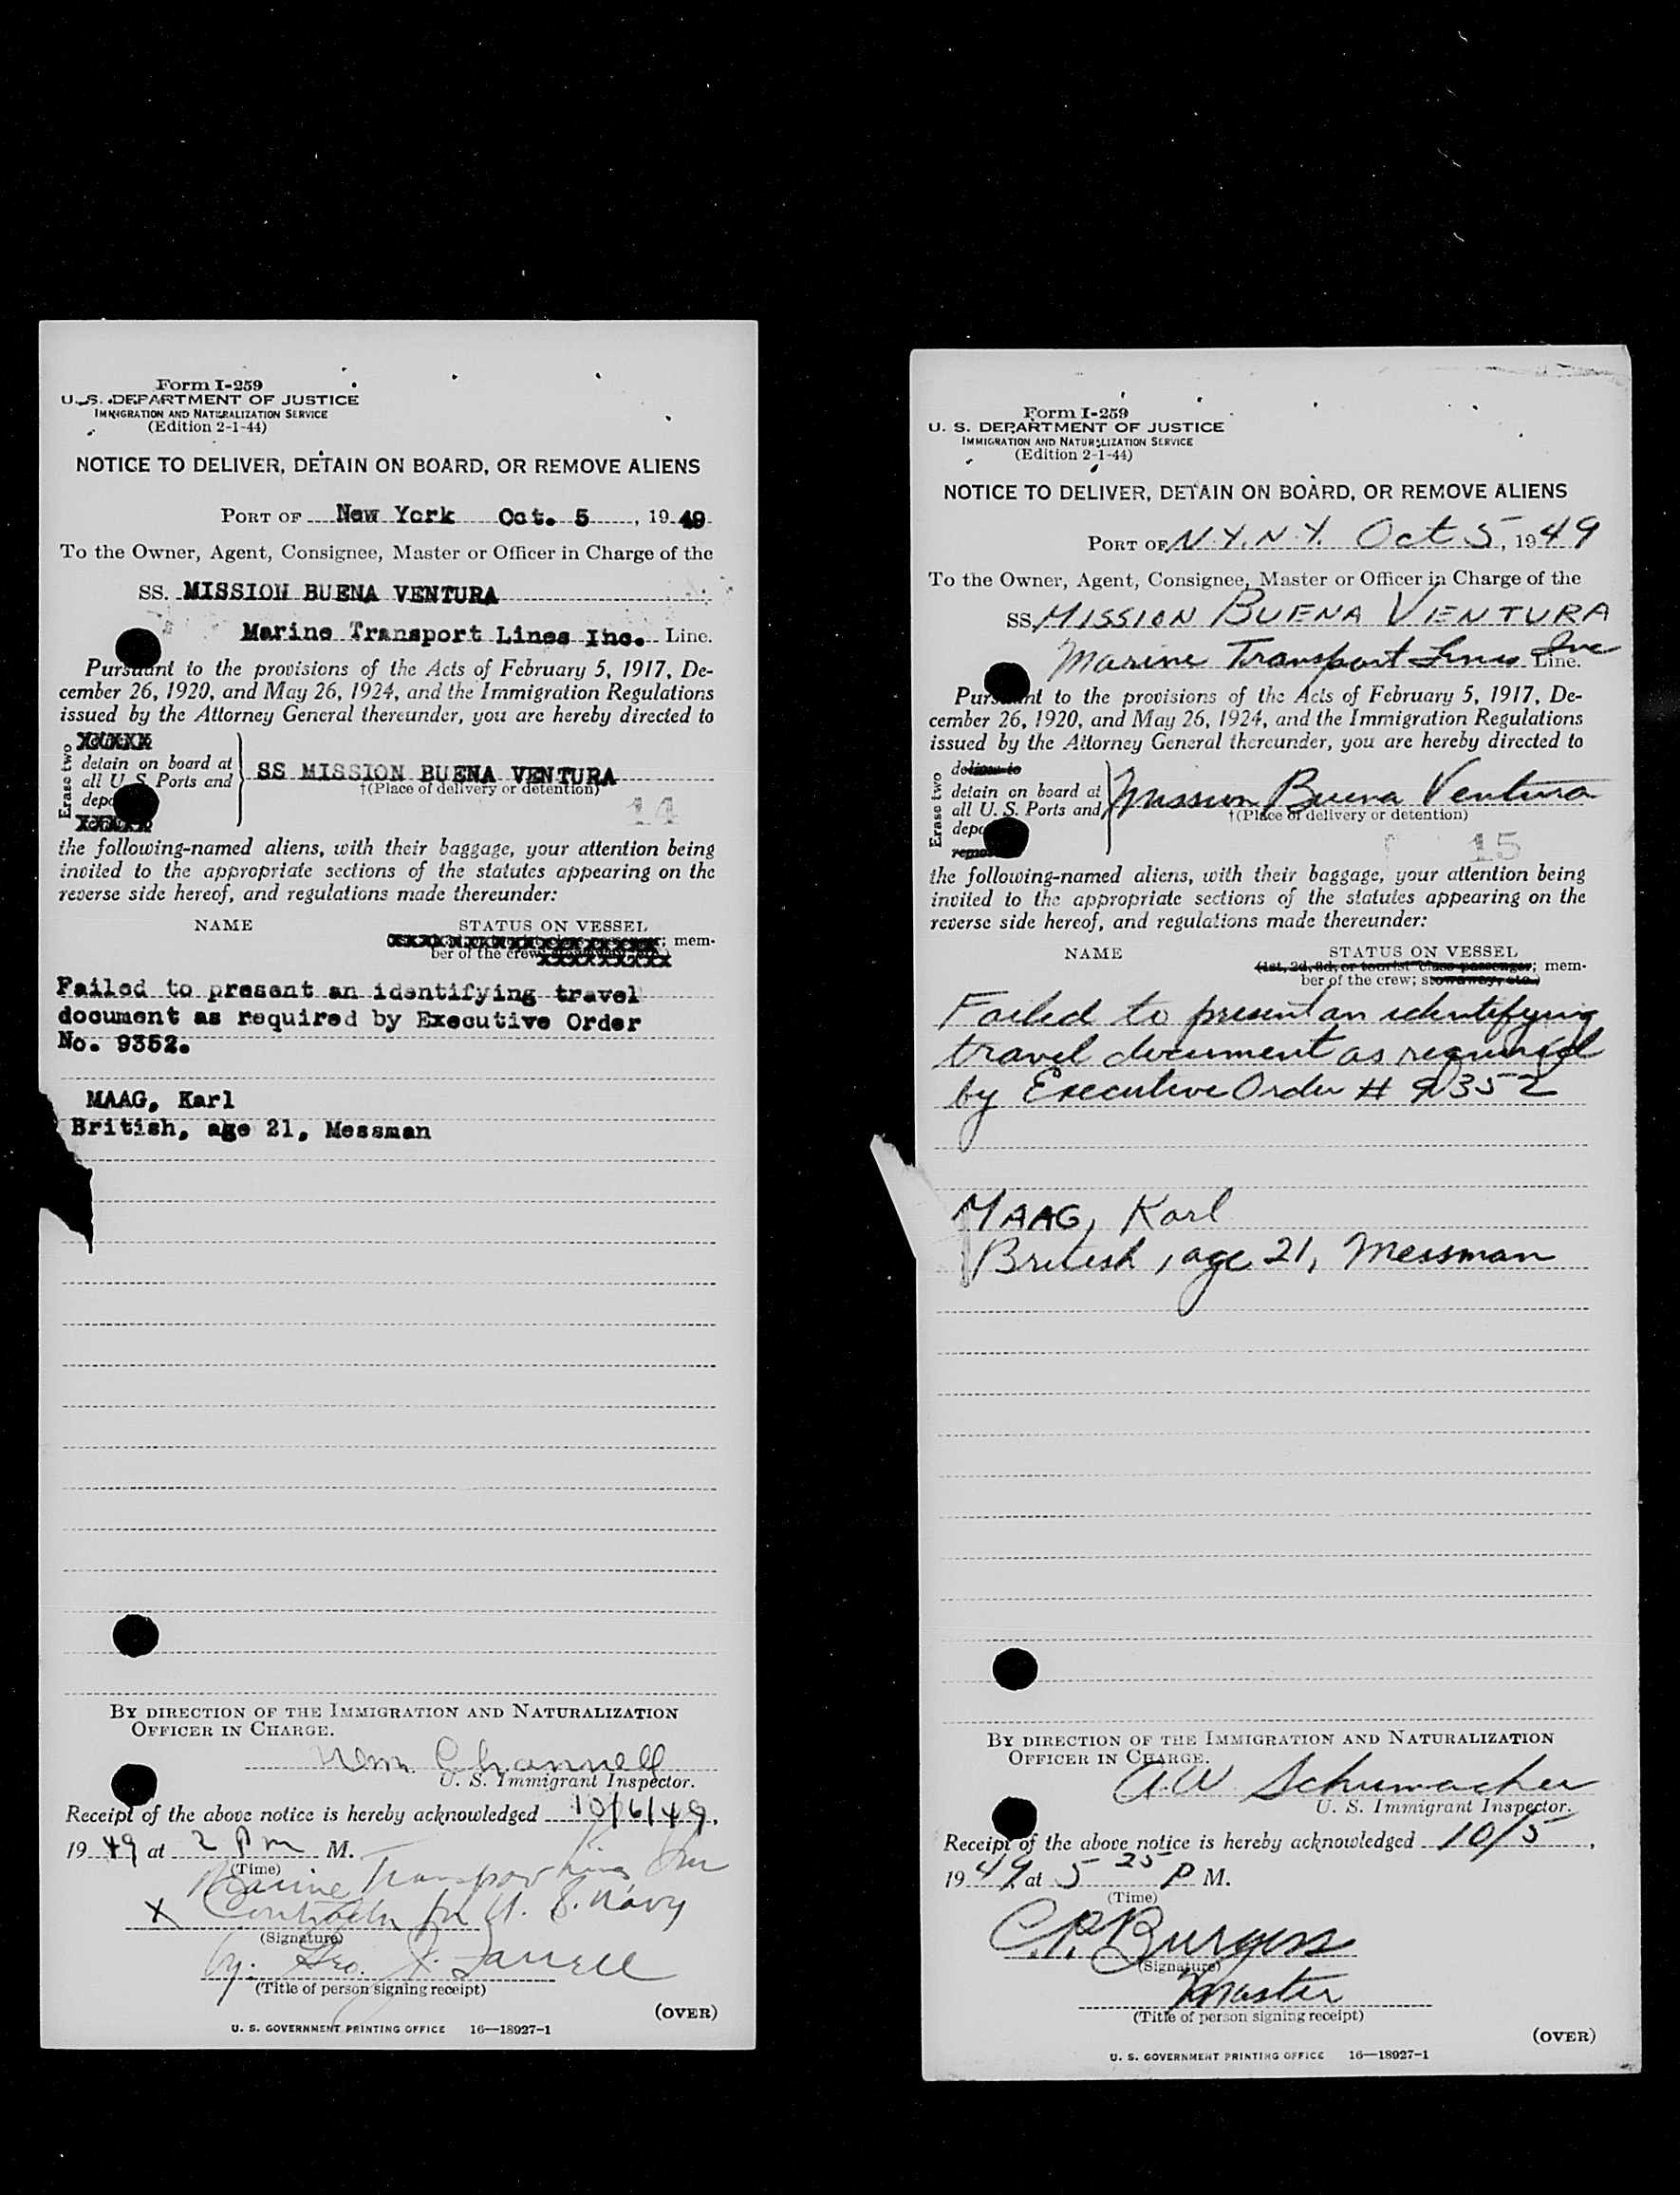 Form I-259
U. S. DEPARTMENT OF JUSTICE
IMMIGRATION AND NATURALIZATION SERVICE
(Edition 2-1-44)
NOTICE TO DELIVER, DETAIN ON BOARD, OR REMOVE ALIENS
PORT OF New York Oct. 5, 1949
To the Owner, Agent, Consignee, Master or Officer in Charge of the
SS. MISSION BUENA VENTURA
Marine Transport Lines Inc. Line.
Pursuant to the provisions of the Acts of February 5, 1917, De-
cember 26, 1920, and May 26, 1924, and the Immigration Regulations
issued by the Attorney General thereunder, you are hereby directed to
Erase two
detain on board at
all U. S. Ports and
SS MISSION BUENA VENTURA
†(Place of delivery or detention)
14
the following-named aliens, with their baggage, your attention being
invited to the appropriate sections of the statutes appearing on the
reverse side hereof, and regulations made thereunder:
NAME STATUS ON VESSEL
; mem-
ber of the crew;
Failed to present an identifying travel
document as required by Executive Order
No. 9352.
MAAG, Karl
British, age 21, Messman
BY DIRECTION OF THE IMMIGRATION AND NATURALIZATION
OFFICER IN CHARGE.
Wm. Channell
U. S. Immigrant Inspector.
Receipt of the above notice is hereby acknowledged 10/6/49,
1949 at 2 pm M.
(Time)
Marine Transport Lines Inc
X Contractor for U. S. Navy
(Signature)
by. Geo. J. Farrell
(Title of person signing receipt)
(OVER)
U. S. GOVERNMENT PRINTING OFFICE 16—18927-1
Form I-259
U. S. DEPARTMENT OF JUSTICE
IMMIGRATION AND NATURALIZATION SERVICE
(Edition 2-1-44)
NOTICE TO DELIVER, DETAIN ON BOARD, OR REMOVE ALIENS
PORT OF N.Y. N.Y. Oct 5, 1949
To the Owner, Agent, Consignee, Master or Officer in Charge of the
SS. MISSION BUENA VENTURA
Marine Transport Lines Inc Line.
Pursuant to the provisions of the Acts of February 5, 1917, De-
cember 26, 1920, and May 26, 1924, and the Immigration Regulations
issued by the Attorney General thereunder, you are hereby directed to
Erase two
deliver to
detain on board at
all U. S. Ports and
Mission Buena Ventura
†(Place of delivery or detention)
15
the following-named aliens, with their baggage, your attention being
invited to the appropriate sections of the statutes appearing on the
reverse side hereof, and regulations made thereunder:
NAME STATUS ON VESSEL
(1st, 2d, 3d, or tourist class passenger; mem-
ber of the crew; stowaway, etc.)
Failed to present an identifying
travel document as required
by Executive Order # 9352
MAAG, Karl
British, age 21, Messman
BY DIRECTION OF THE IMMIGRATION AND NATURALIZATION
OFFICER IN CHARGE.
A.W. Schumacher
U. S. Immigrant Inspector.
Receipt of the above notice is hereby acknowledged 10/5,
1949, at 5 25 P M.
(Time)
C.P. Burgess
(Signature)
Master
(Title of person signing receipt)
(OVER)
U. S. GOVERNMENT PRINTING OFFICE 16—18927-1